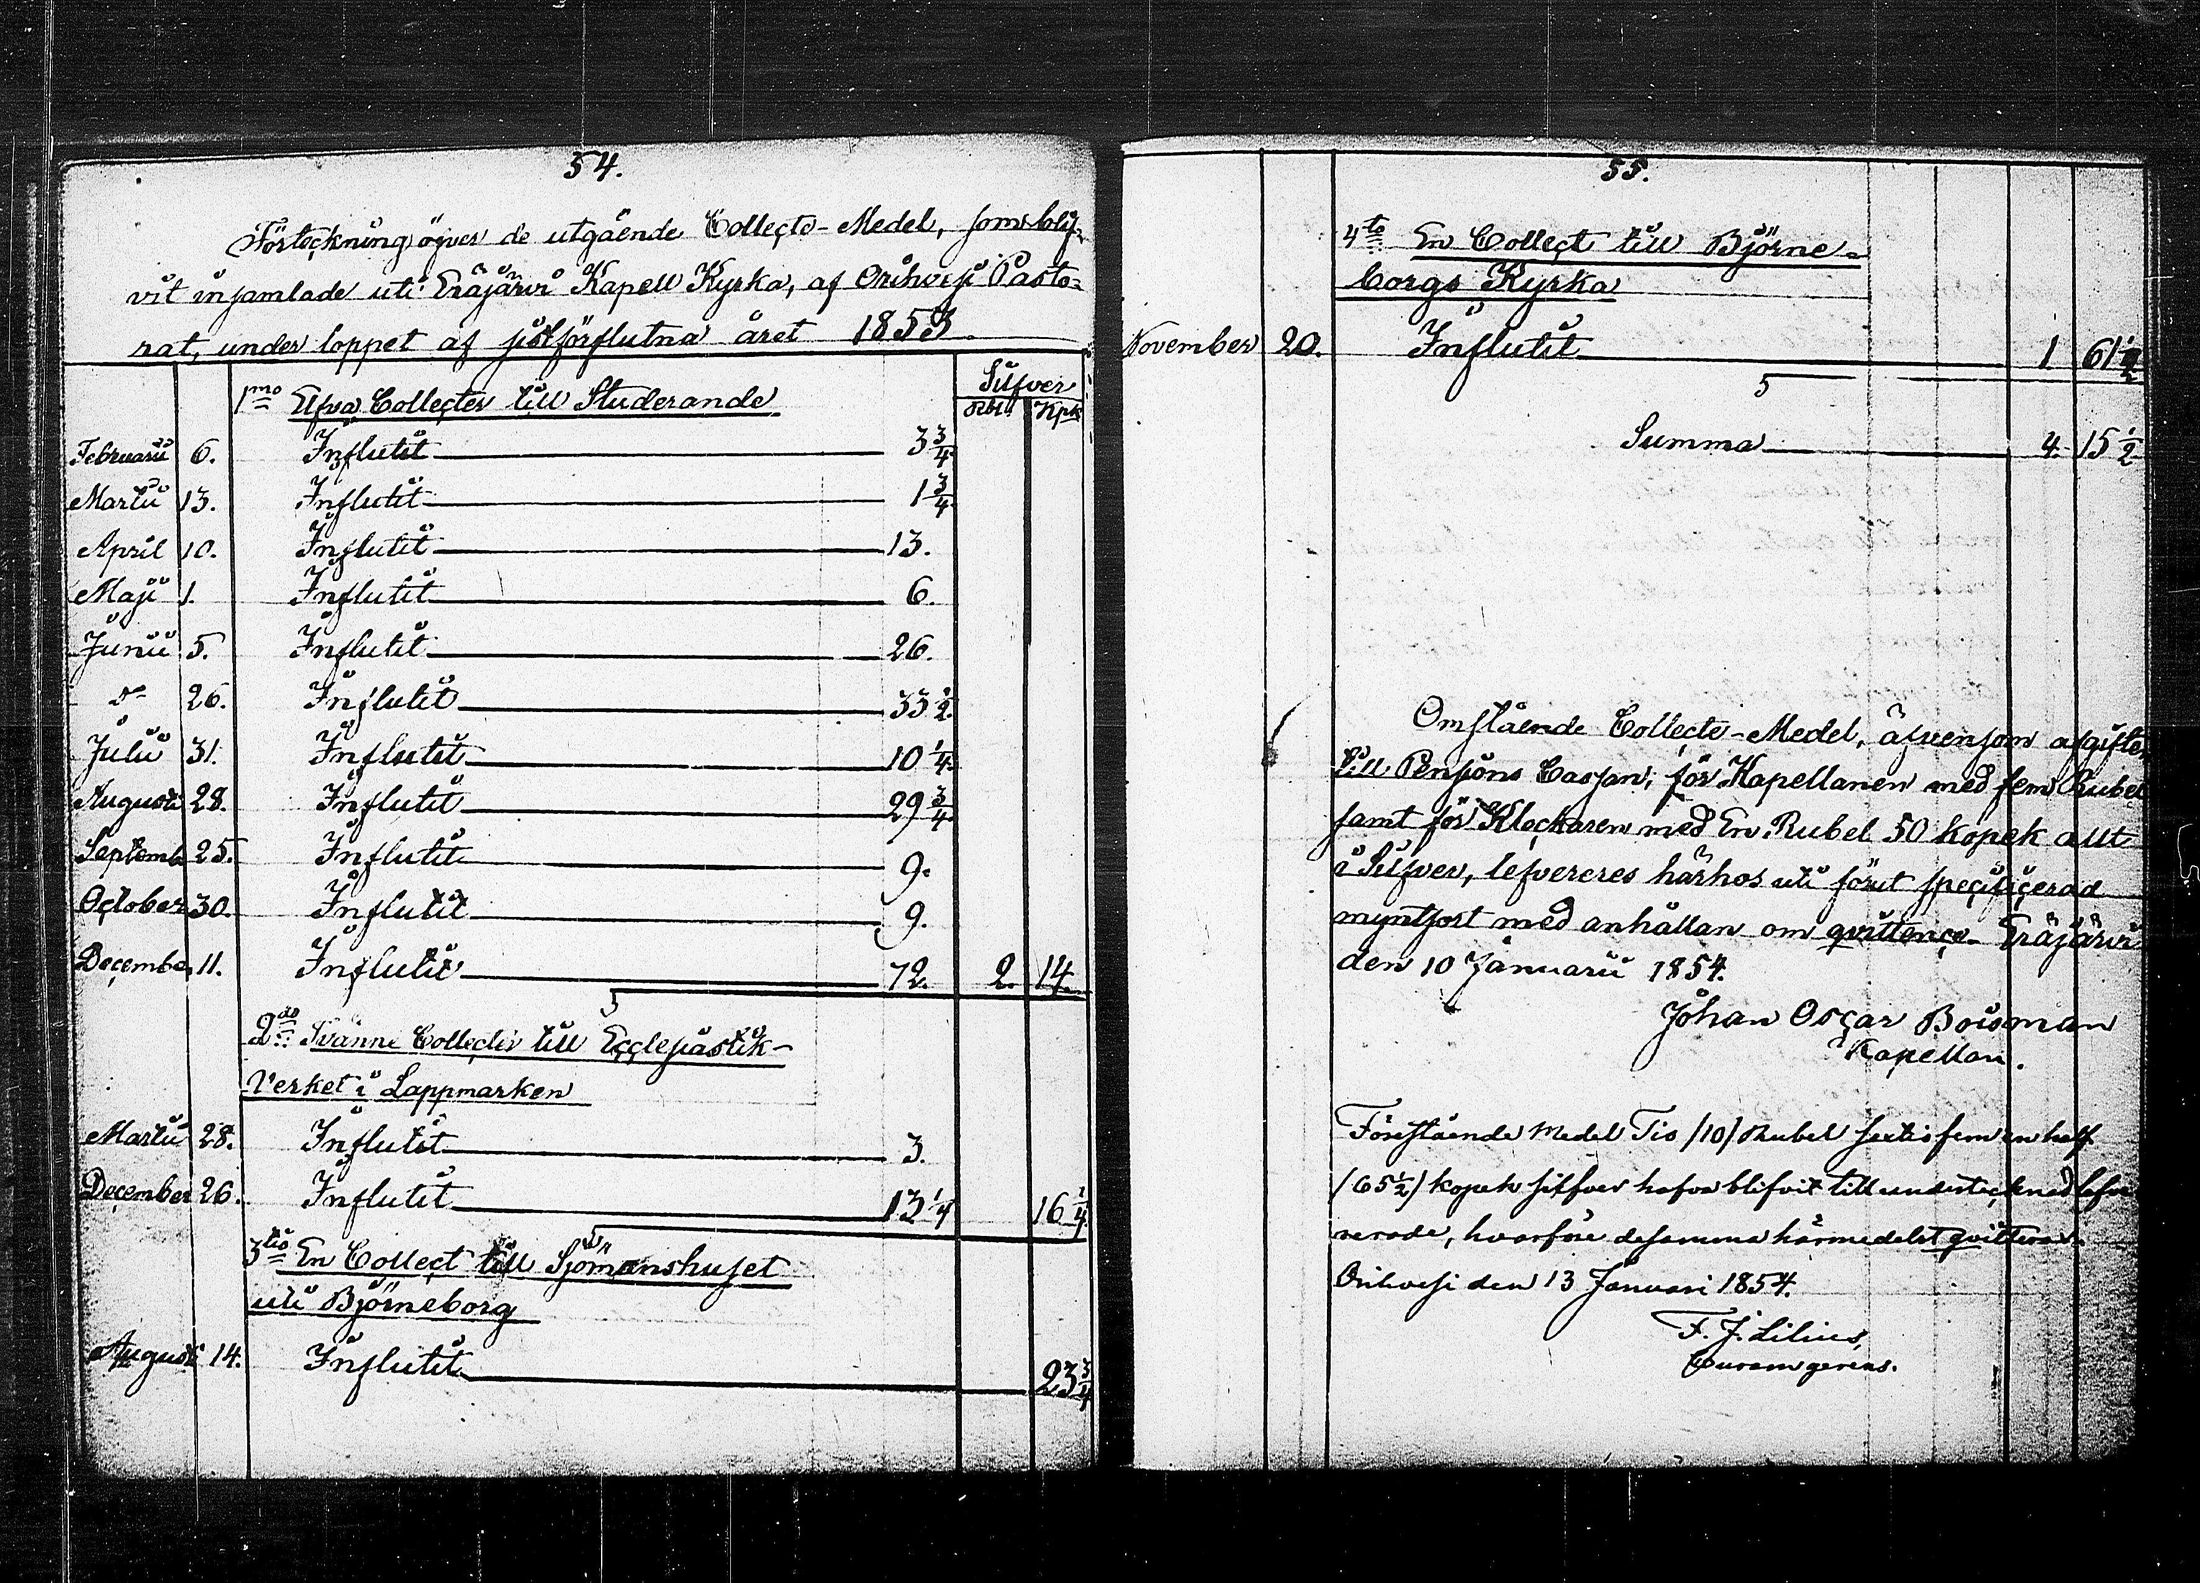 54.
Förteckning öfver de utgående Collecte-Medel, som blif-
vit insamlade uti Eräjärvi Kapell Kyrka, af Orihvesi Pasto-
rat, under loppet af sistförflutna året 1853.
Silfver
Rbl. Kpk
1mo Elfva Collecter till Studerande
Februarii 6. Influtit 3 3/4
Martii 13. Influtit 1 3/4
April 10. Influtit 13.
Maji 1. Influtit 6.
Junii 5. Influtit 26.
do 26. Influtit 33 1/2
Julii 31. Influtit 10 1/4
Augusti 28. Influtit 29 3/4
Septemb 25. Influtit 9.
October 30. Influtit 9.
December 11. Influtit 72. 2. 14.
2do Tvänne Collecter till Ecclesiastik-
Verket i Lappmarken
Martii 28. Influtit 3.
December 26. Influtit 13 1/4 16 1/4
3tio En Collect till Sjömanshuset
uti Björneborg
Augusti 14. Influtit 23 3/4
55.
4to En Collect till Björne-
borgs Kyrka
November 20. Influtit 1 61 1/2
Summa 4. 15 1/2
Omstående Collecte-Medel, äfvensom afgifte
till Pensions Cassan, för Kapellanen med fem Rubel
samt för Klockaren med En Rubel 50 kopek allt
i Silfver, lefvereres härhos uti förut specificerad
myntsort med anhållan om qvittence. Eräjärvi
den 10 Januarii 1854.
Johan Oscar Boisman
Kapellan.
Förestående Medel Tio /10/ Rubel sextiofem en half
/65 1/2/ kopek silfver hafva blifvit till undertecknad lefve
rerade, hvarföre desamma härmedelst qvitteras.
Orihvesi den 13 Januari 1854.
F. J. Lilius,
Curam gerens.